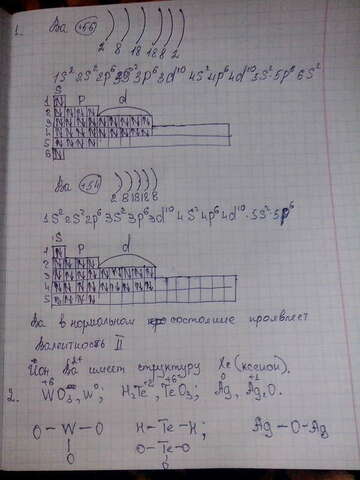 1. Ba +56 2 8 18 18 8 2
1S² 2S² 2p⁶ 3S² 3p⁶ 3d¹⁰ 4S² 4p⁶ 4d¹⁰ 5S² 5p⁶ 6S²
S
1 p d
2
3
4
5
6
Ba +54 2 8 18 18 8
1S² 2S² 2p⁶ 3S² 3p⁶ 3d¹⁰ 4S² 4p⁶ 4d¹⁰ 5S² 5p⁶
S
1 p d
2
3
4
5
Ba в нормальном состояние проявляет
валентность II
Ион Ba²⁺ имеет структуру Xe (ксенон).
2. W⁺⁶O₃, W⁰; H₂Te⁺², Te⁺⁶O₃; Ag⁰, Ag⁺¹₂O.
O - W - O H - Te - H; Ag - O - Ag
O O - Te - O
O